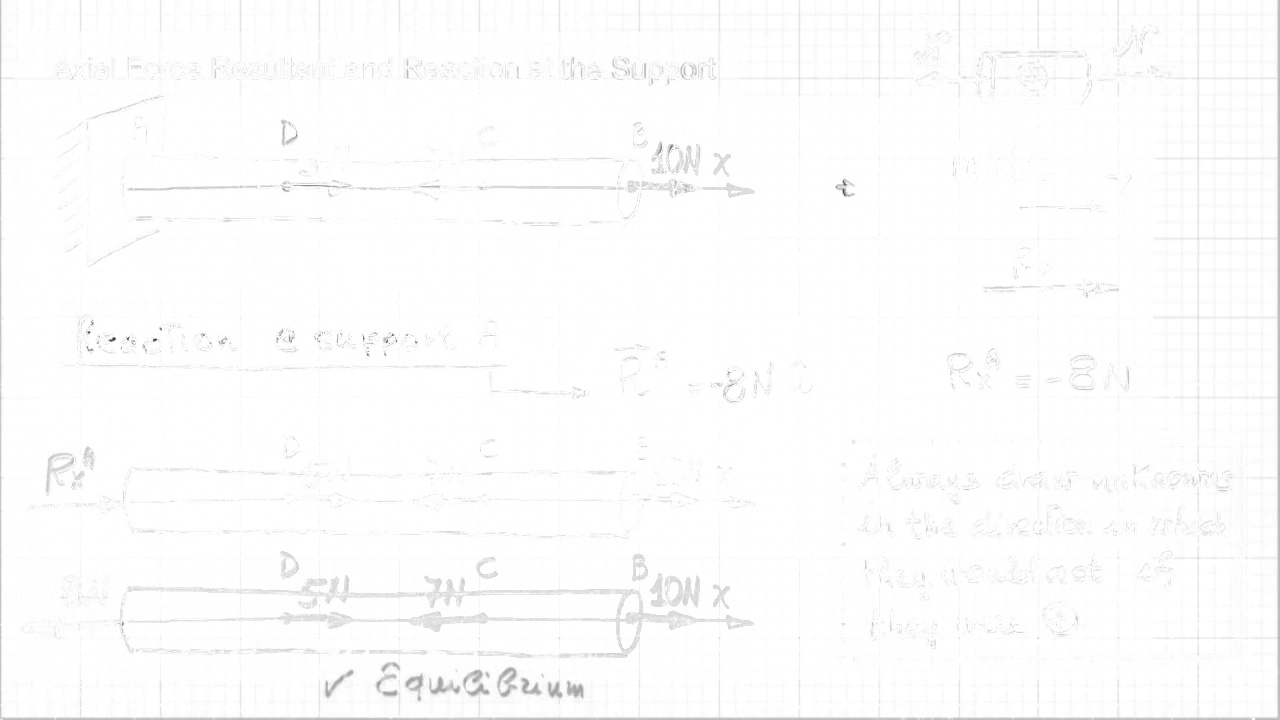 Axial Force Resultant and Reaction at the Support
N N
A D 5N 7N C B 10N x
Reaction @ support A
R^A = -8N
Rx^A = -8N
Rx^A D 5N 7N C B 10N x
Always draw unknowns
in the direction in which
they would act if
they were ⊕
8N D 5N 7N C B 10N x
✓ Equilibrium